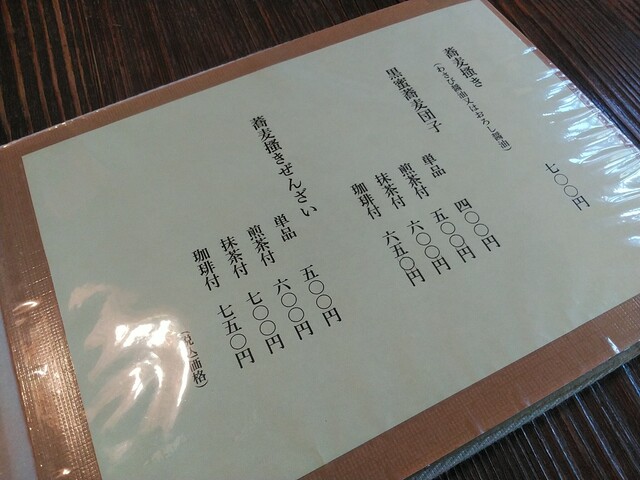 蕎麦掻き
(わさび醤油又はおろし醤油)
七〇〇円
黒蜜蕎麦団子
単品 四〇〇円
煎茶付 五〇〇円
抹茶付 六〇〇円
珈琲付 六五〇円
蕎麦掻きぜんざい
単品 五〇〇円
煎茶付 六〇〇円
抹茶付 七〇〇円
珈琲付 七五〇円
(税込価格)